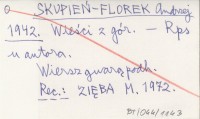 SKUPIEŃ-FLOREK Andrzej
1942. Wieści z gór. — Rps
u autora.
Wiersz gwarą podh.
Rec.: ZIĘBA M. 1972.
BT/044/1143